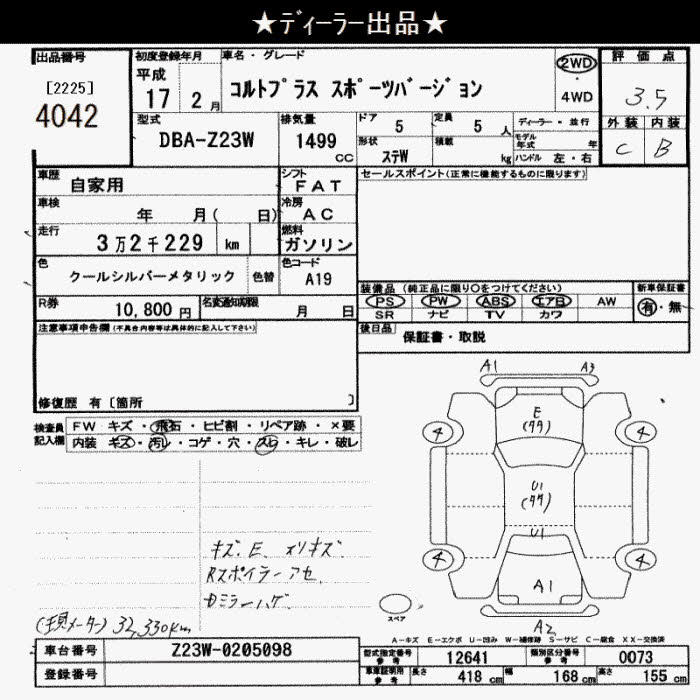 ★ディーラー出品★
出品番号
[2225]
4042
初度登録年月
平成
17 2 月
車名・グレード
コルトプラス スポーツバージョン
2WD
・
4WD
評価点
3.5
外装 内装
C B
型式
DBA-Z23W
排気量
1499
CC
ドア 5
定員 5 人
形状
ステW
積載
kg
ディーラー・並行
モデル年式 年
ハンドル 左・右
車歴
自家用
シフト
FAT
セールスポイント(正常に機能するものに限ります)
車検
年 月( 日)
冷房
AC
走行
3万2千229 km
燃料
ガソリン
色
クールシルバーメタリック
色替
色コード
A19
装備品 (純正品に限り○をつけてください)
新車保証書
PS PW ABS エアB AW
SR ナビ TV カワ
有・無
R券
10,800 円
名変通知期限
月 日
後日品
保証書・取説
注意事項申告欄(不具合内容等は具体的に記入して下さい)
修復歴 有 [箇所 ]
検査員
記入欄
FW キズ・飛石・ヒビ割・リペア跡・×要
内装 キズ・汚レ・コゲ・穴・スレ・キレ・破レ
キズ. E. スリキズ.
Rスポイラーアセ.
ドミラーハゲ.
(現メーター) 32,330km
A1 A3
E
(タタ)
4 4
U1
(タタ)
U1
4 4
A1
A2
スペア
A-キズ E-エクボ U-凹み W-補修跡 S-サビ C-腐食 XX-交換済
車台番号
Z23W-0205098
登録番号
型式指定番号
参考
12641
類別区分番号
参考
0073
車庫証明用
参考
長さ 418 cm
幅 168 cm
高さ 155 cm